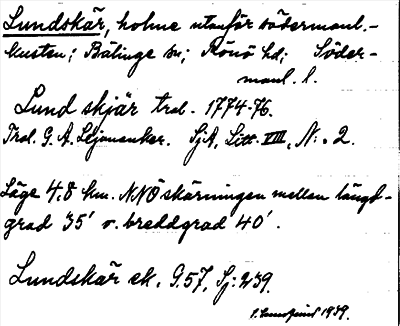 Lundskär, holme utanför södermanl.-
kusten; Bälinge sn; Rönö hd; Söder-
manl. l.
Lund skjär trol. 1774-76.
Trol. G. A. Leijonancker. SjA, Litt. VIII, N:o 2.
Läge 4.8 km. NNÖ skärningen mellan längd-
grad 35' o. breddgrad 40'.
Lundskär ek. G.57, Sj: 239.
1939.